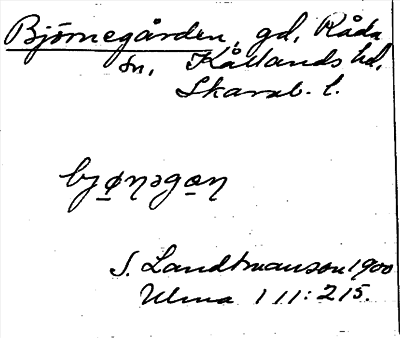 Björnegården, gd, Råda
sn, Kållands hd,
Skarab. l.
bjønəgan
S. Landtmanson 1900
Ulma 111:215.